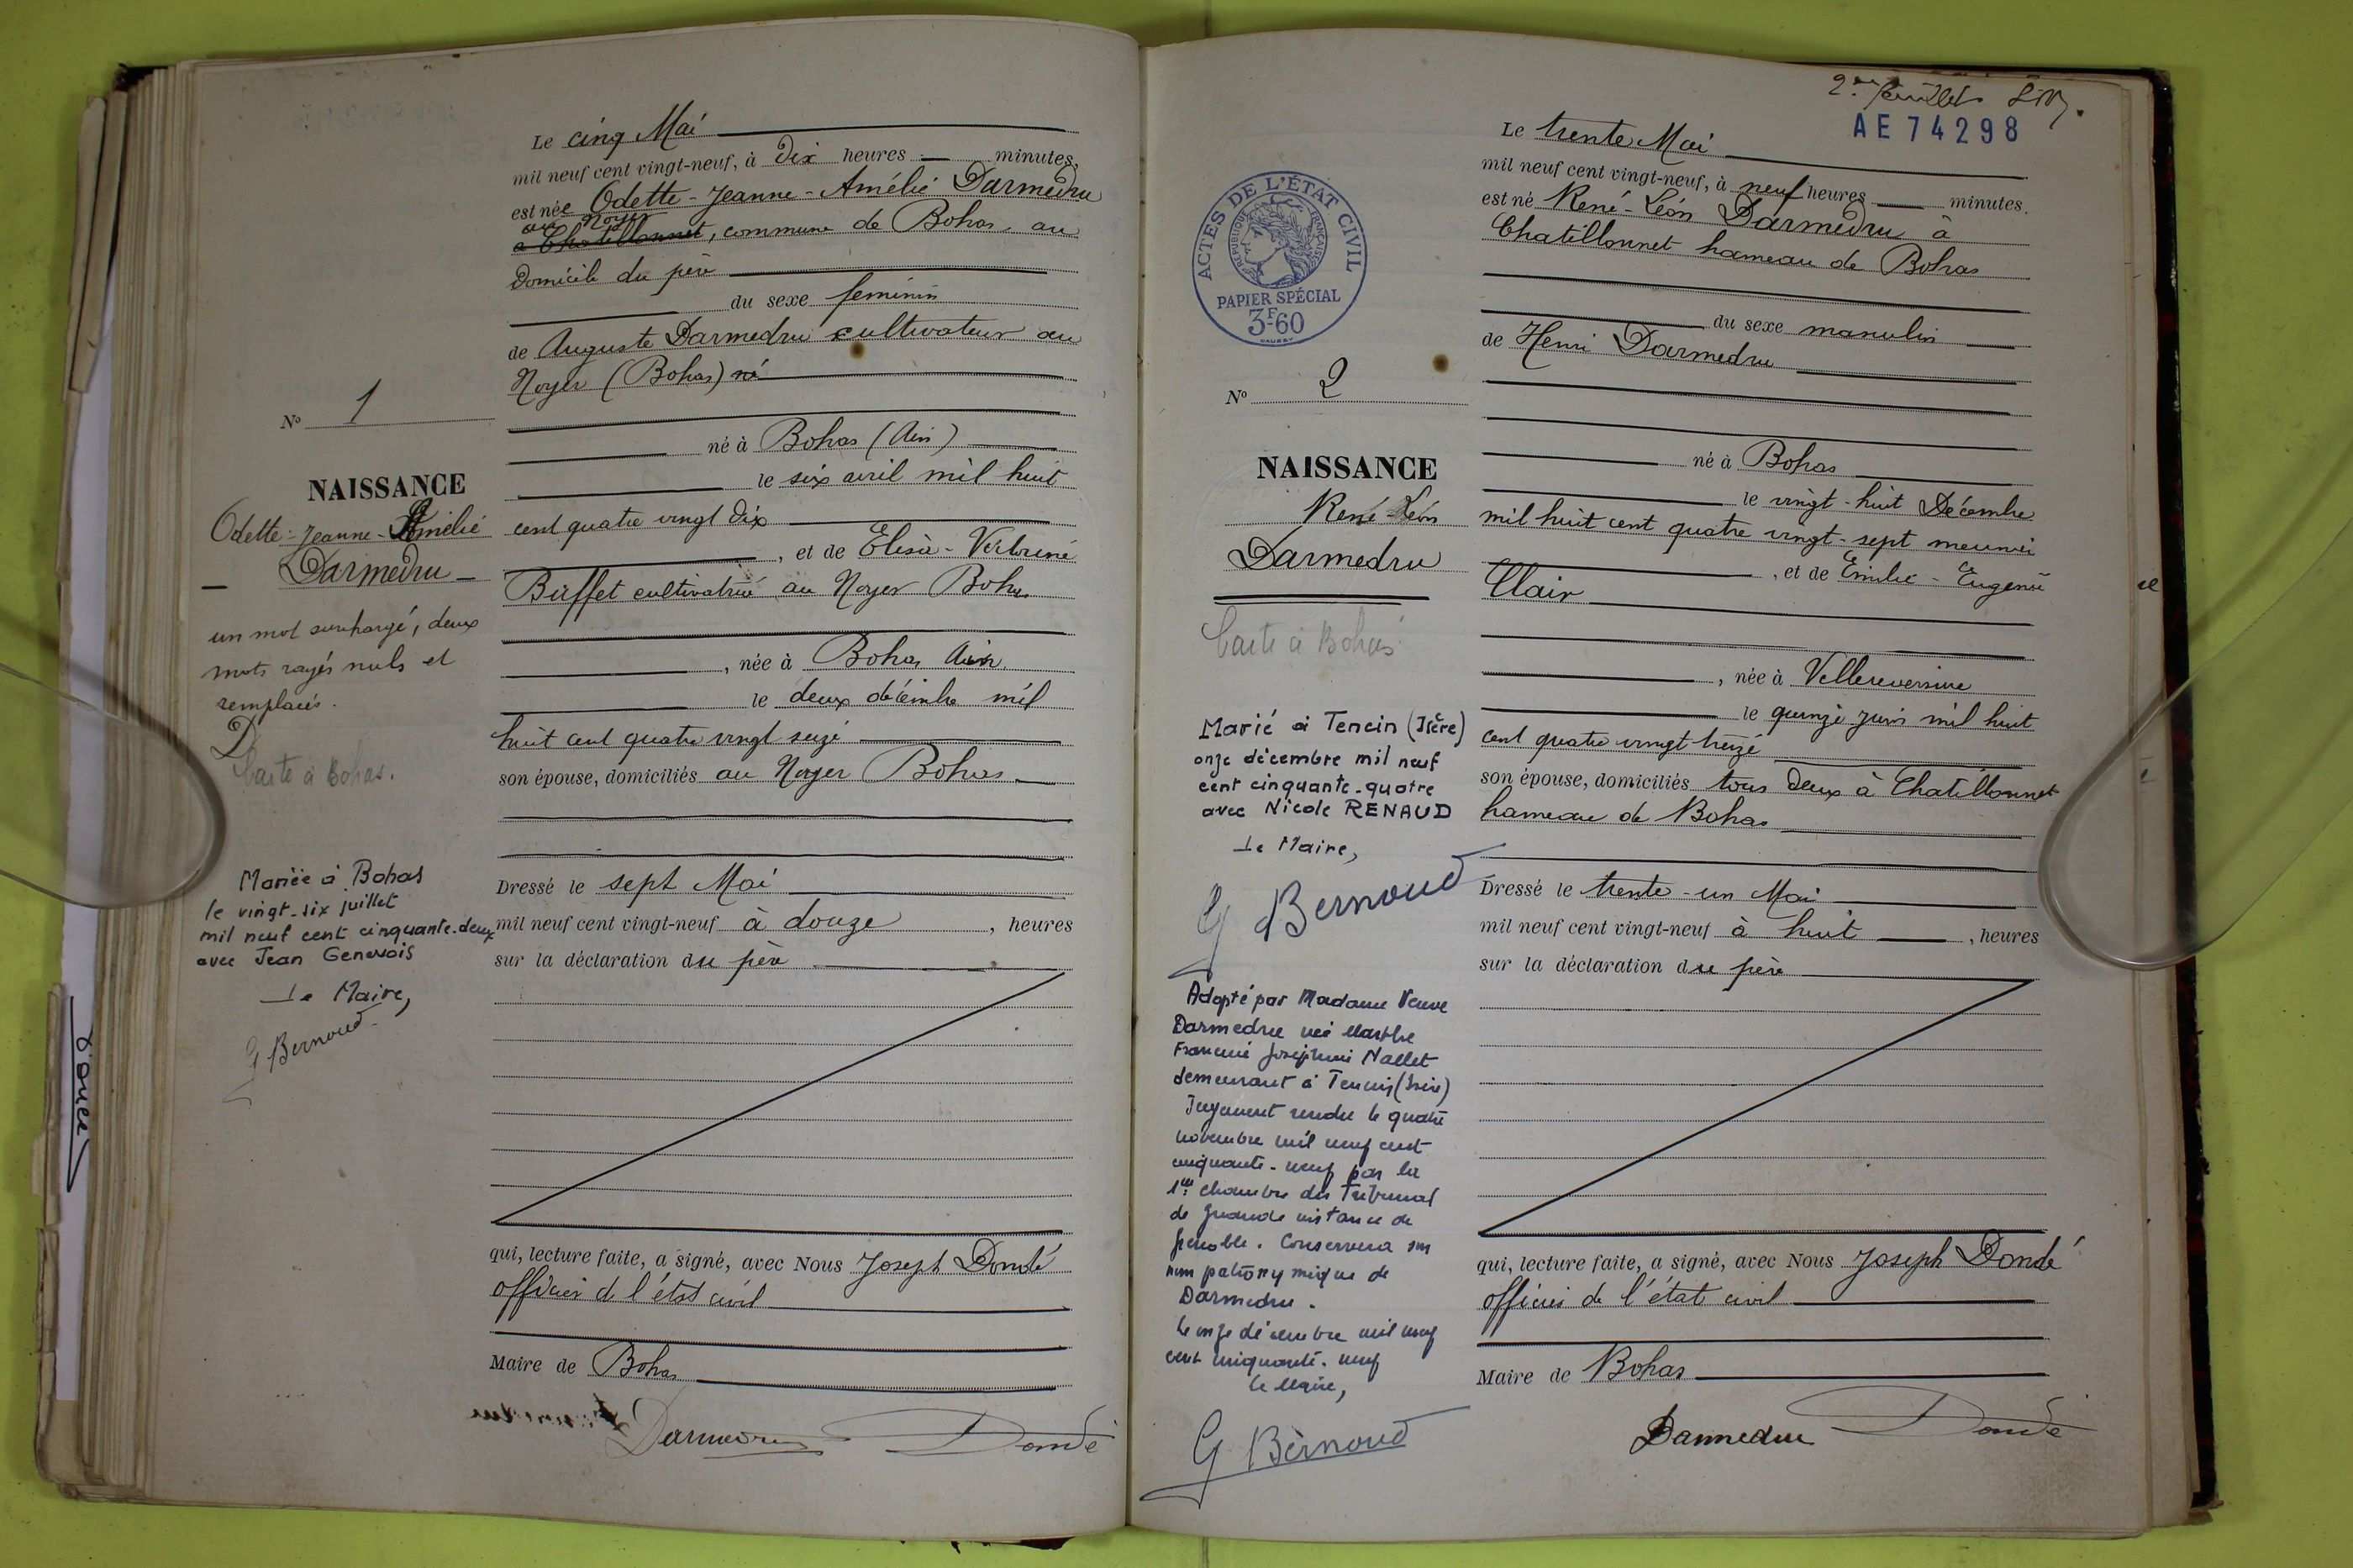 Le cinq Mai
mil neuf cent vingt-neuf, à Dix heures — minutes,
est née Odette-Jeanne-Amélie Darmedru
au Noyer
à Chatillonnet, commune de Bohas, au
Domicile du père
du sexe feminin
de Auguste Darmedru cultivateur au
Noyer (Bohas) né
né à Bohas (Ain)
le six avril mil huit
cent quatre vingt dix
, et de Elisa-
Buffet cultivatrice au Noyer Bohas
, née à Bohas Ain
le deux décembre mil
huit cent quatre vingt seize
son épouse, domiciliés au Noyer Bohas
Dressé le sept Mai
mil neuf cent vingt-neuf à douze , heures
sur la déclaration du père
qui, lecture faite, a signé, avec Nous Joseph Dondé
officier de l'état civil
Maire de Bohas
Darmedru Dondé
No 1
NAISSANCE
Odette-Jeanne-Amélie
Darmedru
un mot surchargé, deux
mots rayés nuls et
remplacés.
D
Carte à Bohas.
Mariée à Bohas
le vingt-six juillet
mil neuf cent cinquante-deux
avec Jean Genevois
Le Maire,
G Bernoud
2me feuillet
AE 74298
Le trente Mai
mil neuf cent vingt-neuf, à neuf heures — minutes.
est né René-Léon Darmedru à
Chatillonnet hameau de Bohas
du sexe masculin
de Henri Darmedru
né à Bohas
le vingt-huit Décembre
mil huit cent quatre vingt-sept meunier
, et de Emilie-Eugenie
Clair
, née à Villereversure
le quinze juin mil huit
cent quatre vingt treize
son épouse, domiciliés tous deux à Chatillonnet
hameau de Bohas
Dressé le trente-un Mai
mil neuf cent vingt-neuf à huit , heures
sur la déclaration du père
qui, lecture faite, a signé, avec Nous Joseph Dondé
officier de l'état civil
Maire de Bohas
Darmedru Dondé
ACTES DE L'ÉTAT CIVIL
RÉPUBLIQUE FRANÇAISE
PAPIER SPÉCIAL
3F60
No 2
NAISSANCE
René-Léon
Darmedru
Carte à Bohas
Marié à Tencin (Isère)
onze décembre mil neuf
cent cinquante-quatre
avec Nicole RENAUD
Le Maire,
G Bernoud
Adopté par Madame Veuve
Darmedru née Marthe
Francine Joséphine Nallet
demeurant à Tencin (Isère)
Jugement rendu le quatre
novembre mil neuf cent
cinquante-neuf par la
1ère chambre du Tribunal
de grande instance de
Grenoble. Conservera son
nom patronymique de
Darmedru.
Le onze décembre mil neuf
cent cinquante-neuf
Le Maire,
G Bernoud